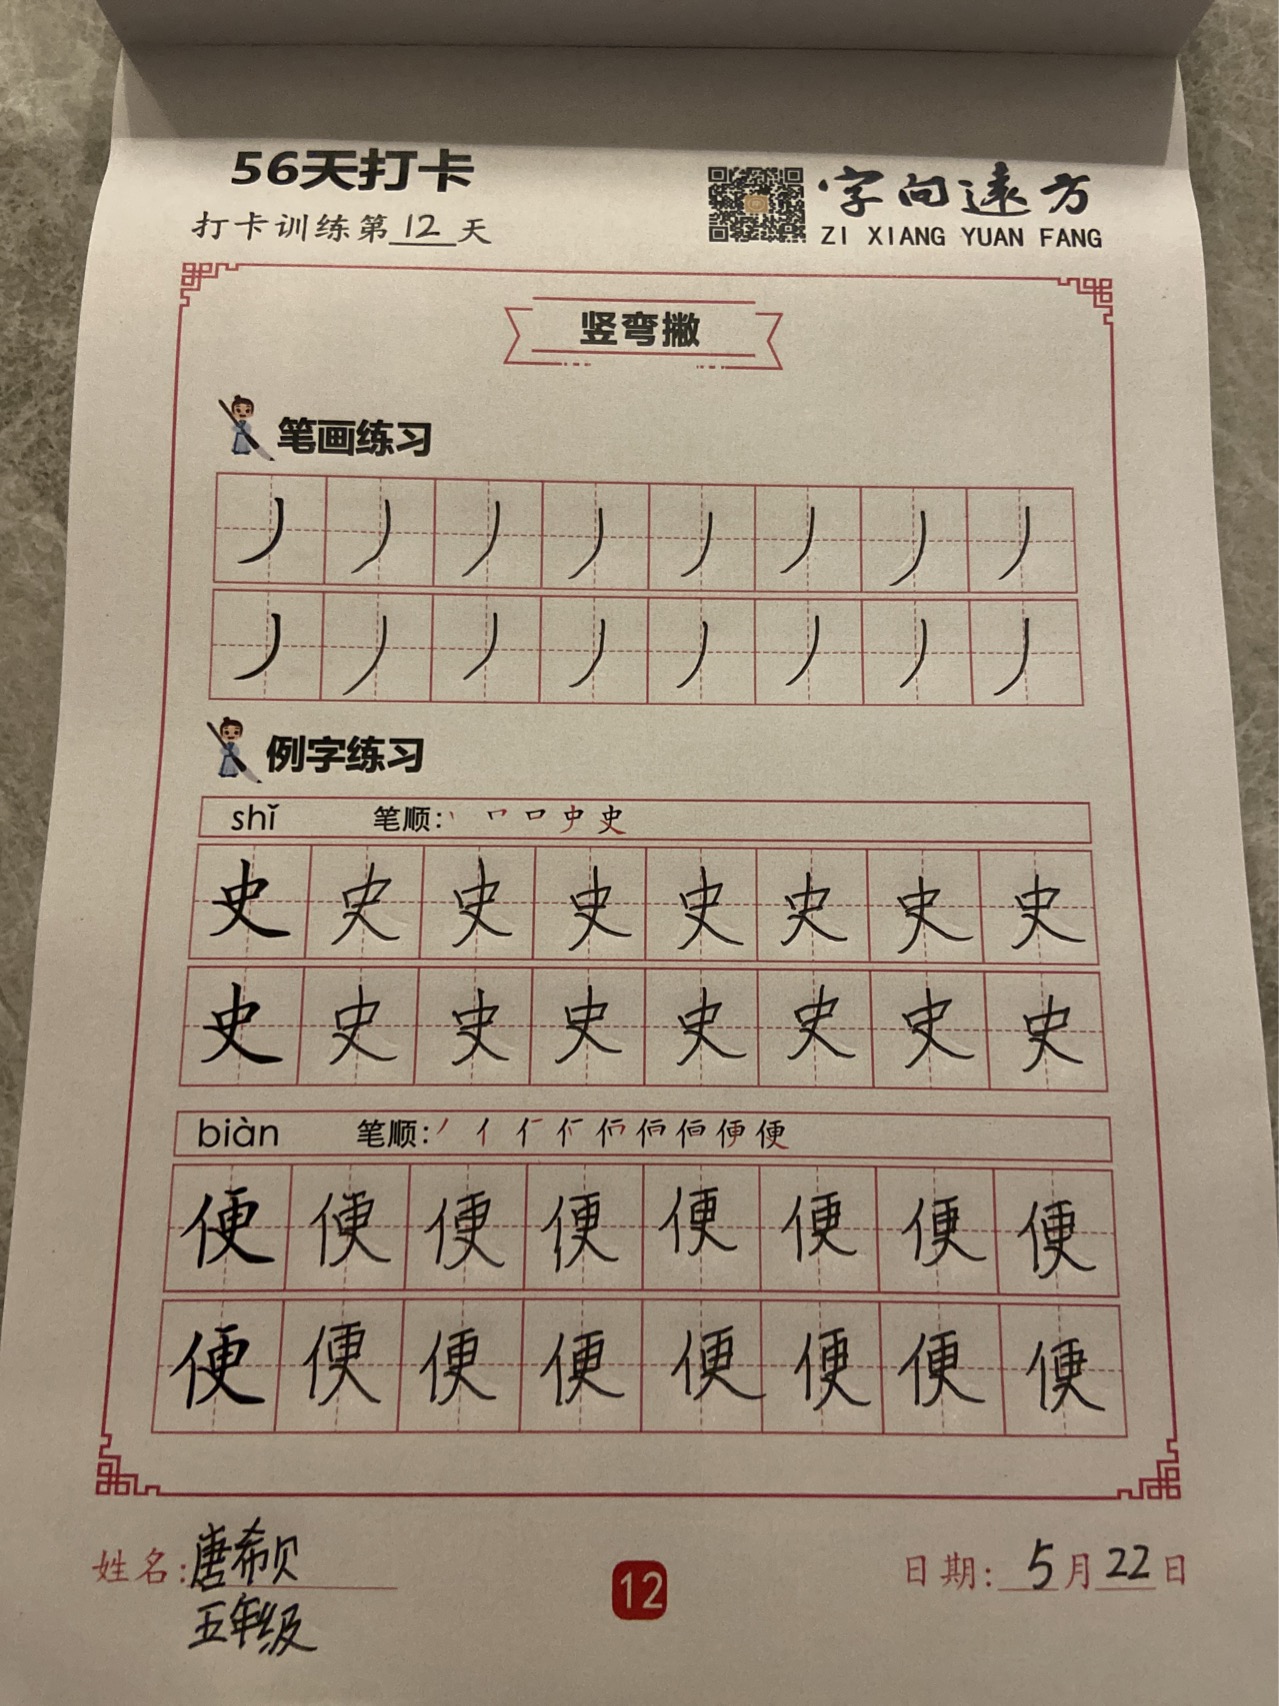 56天打卡
打卡训练第12天
字向远方
ZI XIANG YUAN FANG
竖弯撇
笔画练习
丿丿丿丿丿丿丿丿
丿丿丿丿丿丿丿丿
例字练习
shǐ 笔顺:丶 口 史
史史史史史史史史
史史史史史史史史
biàn 笔顺:丿 亻 便
便便便便便便便便
便便便便便便便便
姓名:唐希贝
五年级
12
日期:5月22日